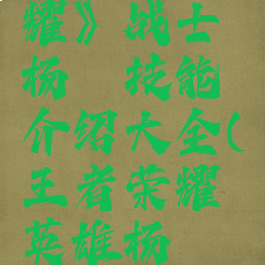 耀》战士
杨 技能
介绍大全(
王者荣耀
英雄杨